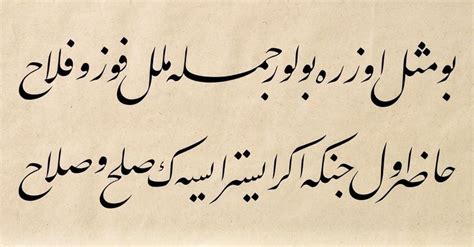 بو مثل اوزره بولور جمله ملل فوز و فلاح
حاضر اول جنكه اكر ايستر ايسه ك صلح و صلاح